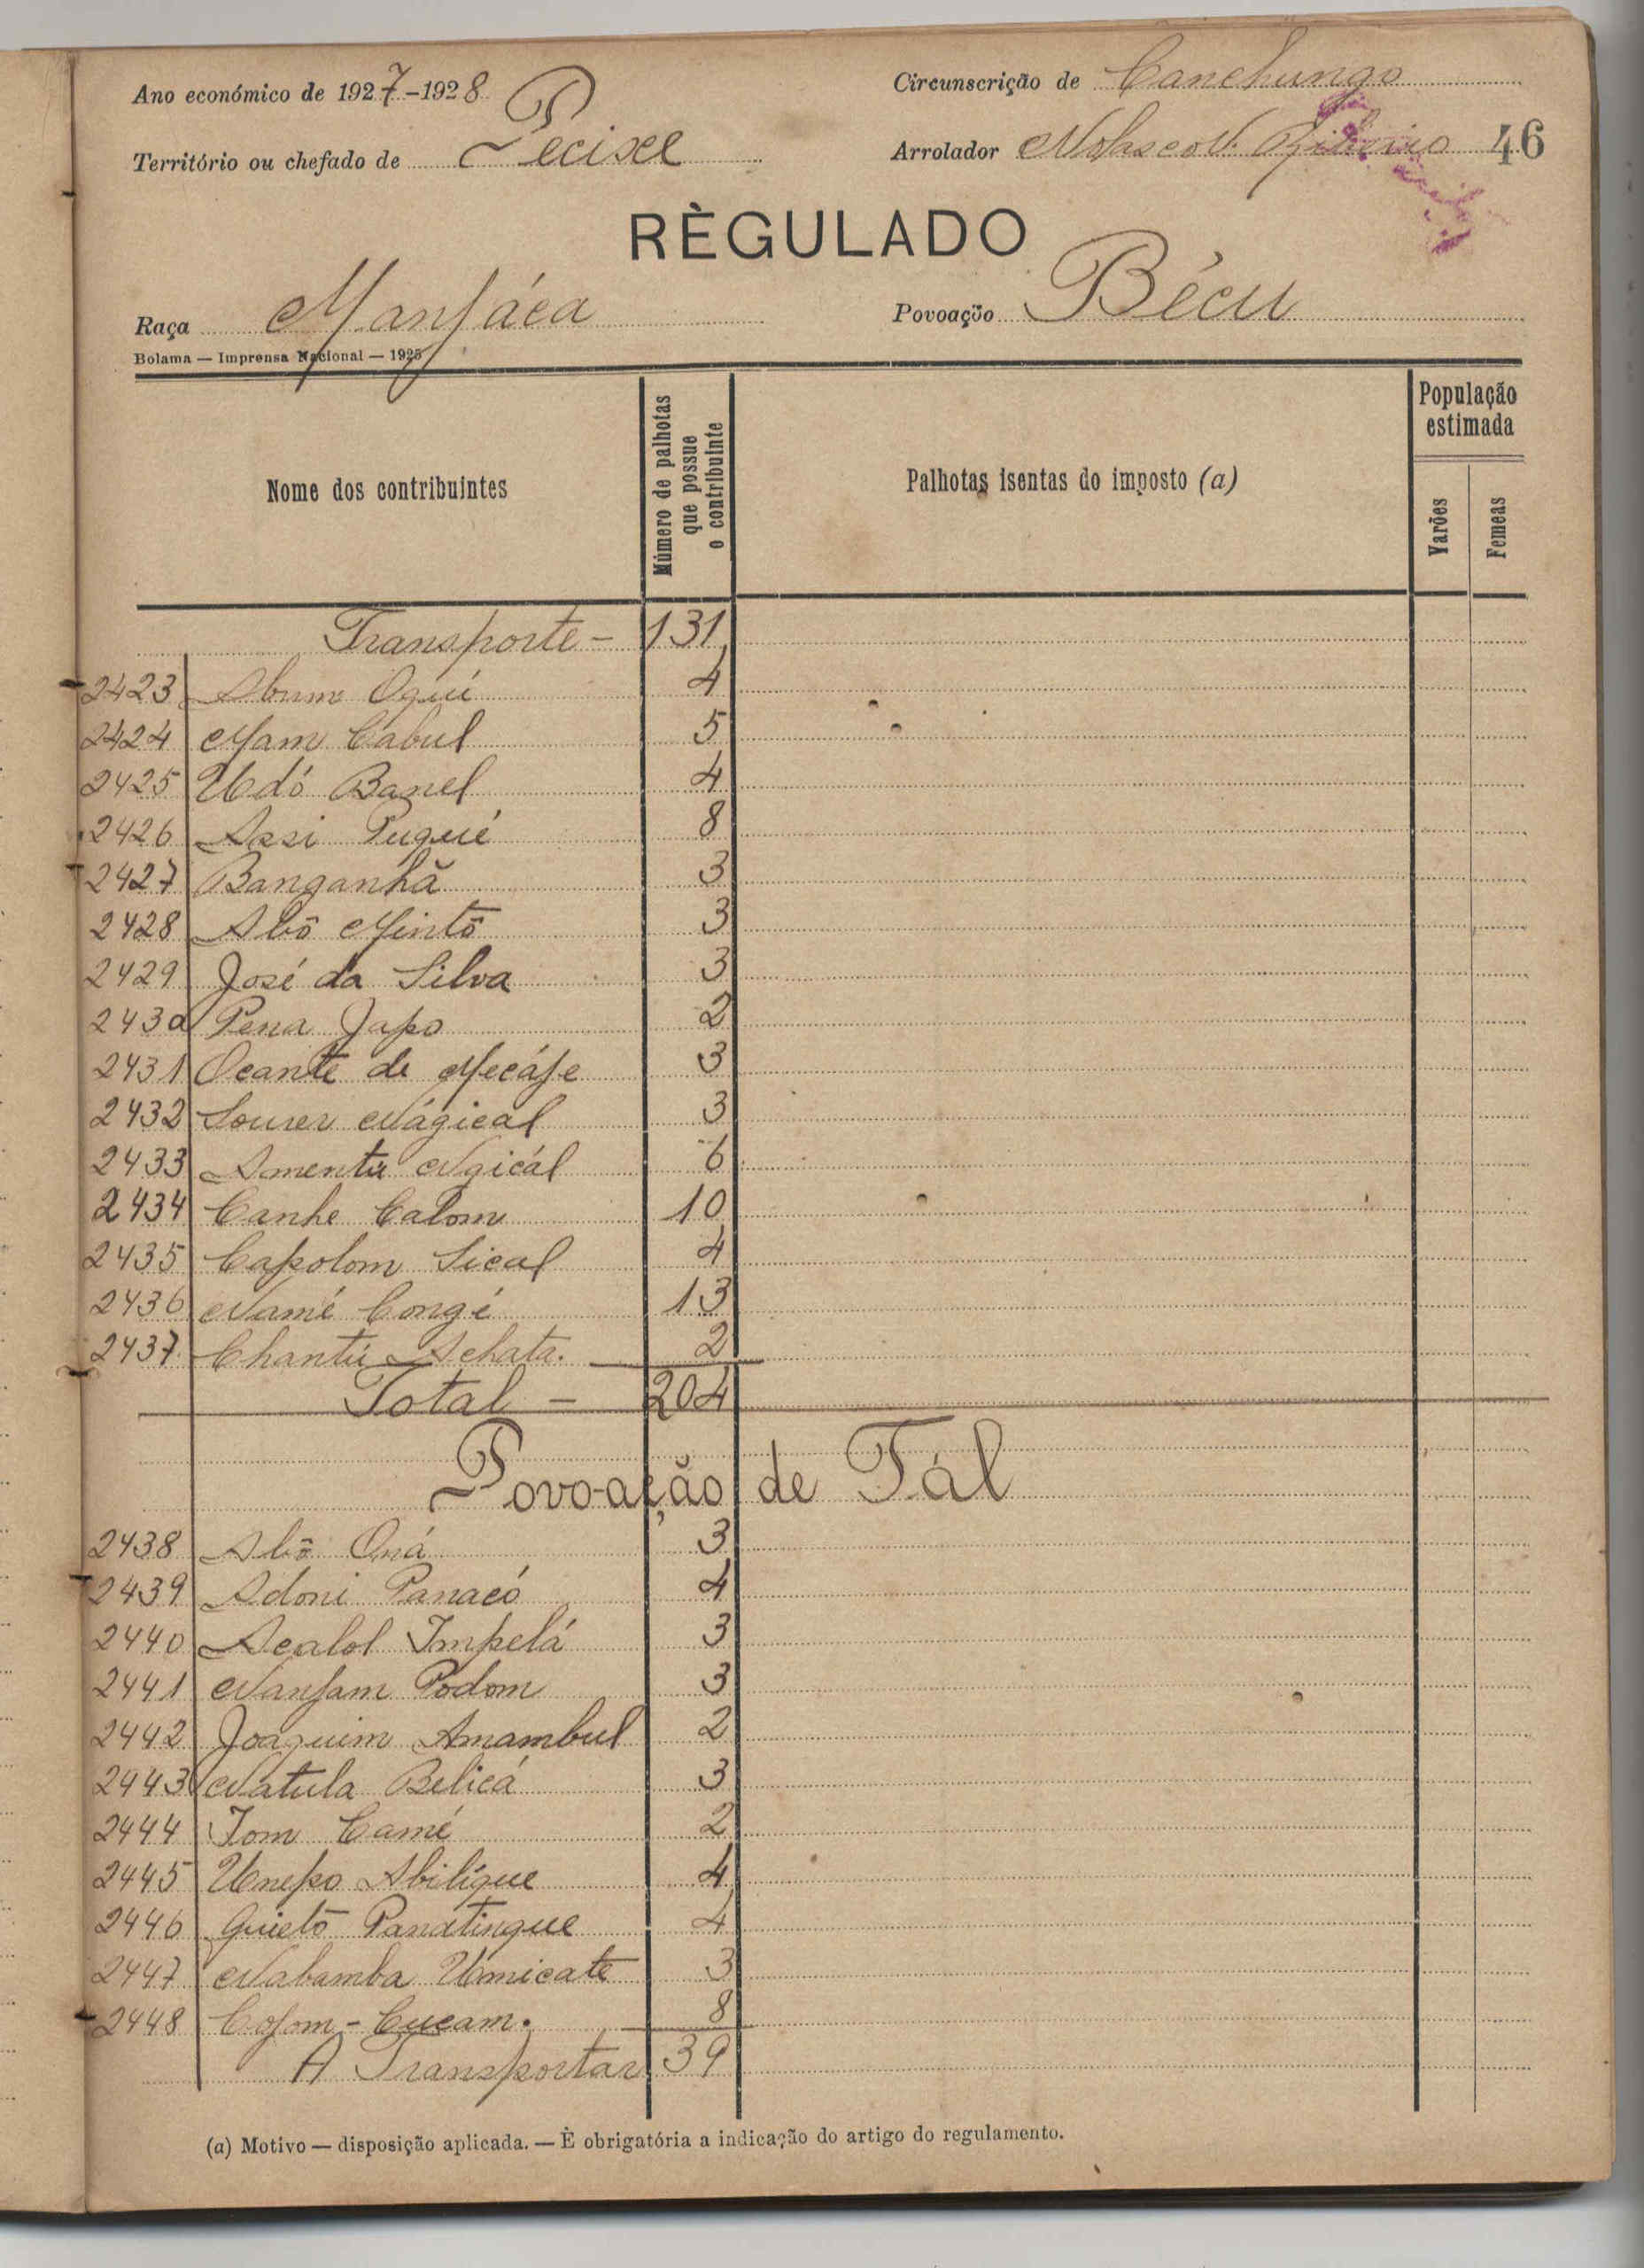 Ano económico de 1927-1928
Circunscrição de Canchungo
Território ou chefado de Pecixe
Arrolador Nolasco N. Ribeiro 46
RÈGULADO
Raça Manjáca
Povoação Bécu
Bolama — Imprensa Nacional — 1925
Nome dos contribuintes
Número de palhotas que possue o contribuinte
Palhotas isentas do imposto (a)
População estimada
Varões
Femeas
Transporte - 131
2423 Abum Oguí 4
2424 Mam Cabul 5
2425 Udó Banel 4
2426 Assi Pugué 8
2427 Banganhã 3
2428 Abô Mintô 3
2429 José da Silva 3
2430 Pena Japo 2
2431 Ocante de Mecáje 3
2432 Nágical 3
2433 Amentu Ngicál 6
2434 Canhe Calom 10
2435 Capolom Sical 4
2436 Namé Congé 13
2437 Chantú Achata. 2
Total - 204
Povoação de Tál
2438 Abô Oná 3
2439 Adoni Panacó 4
2440 Acalol Impelá 3
2441 Nanjam Podom 3
2442 Joaquim Amambul 2
2443 Natula Belicá 3
2444 Tom Camé 2
2445 Unepo Abiligue 4
2446 Quietô Panatingue 4
2447 Nabamba Umicate 3
2448 Cojom - Cucam. 8
A Transportar 39
(a) Motivo — disposição aplicada. — È obrigatória a indicação do artigo do regulamento.